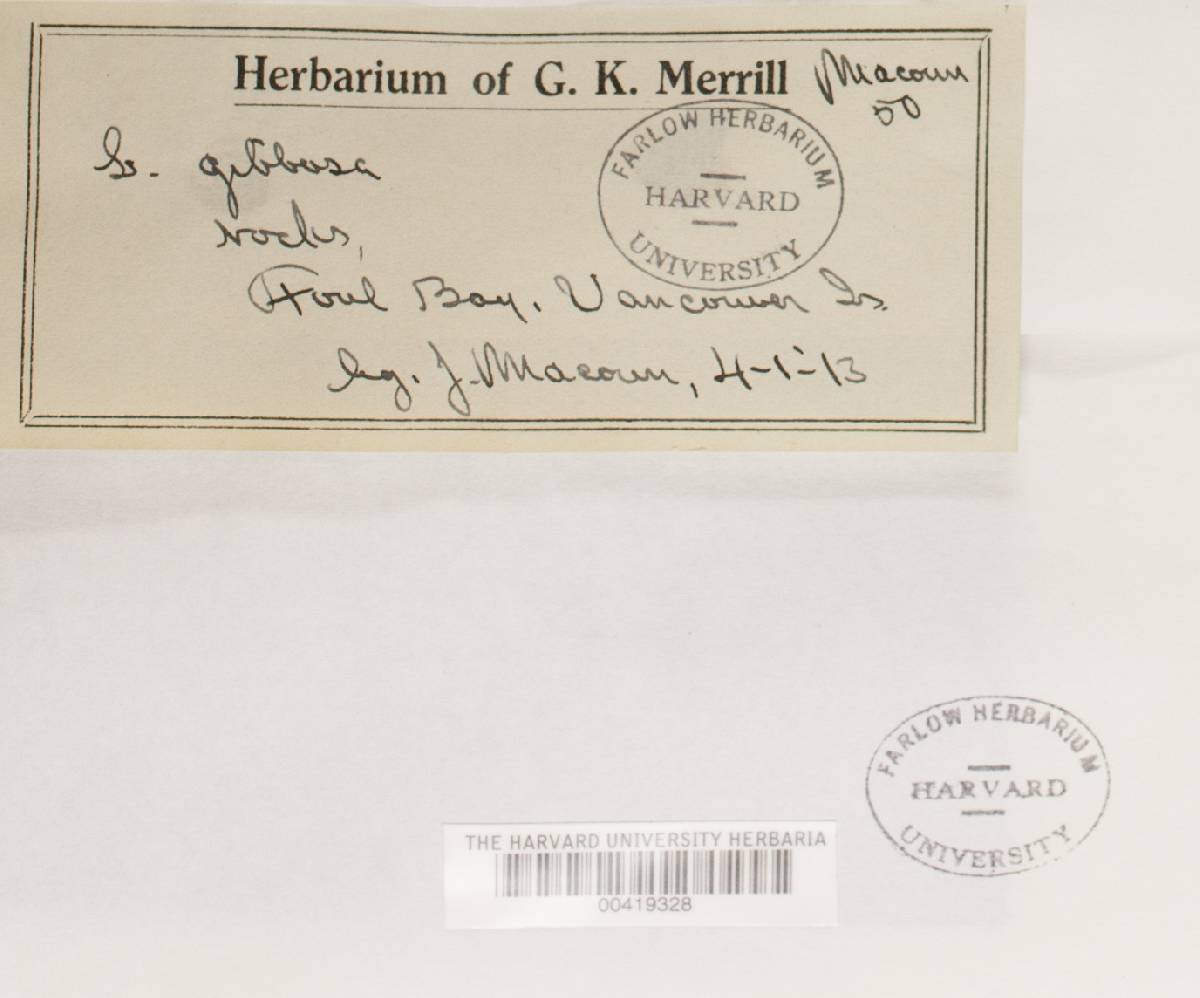 Herbarium of G. K. Merrill
Macoun
50
FARLOW HERBARIUM
HARVARD
UNIVERSITY
gibbosa
rocks,
Foul Bay, Vancouver Is.
leg. J. Macoun, 4-1-'13
FARLOW HERBARIUM
HARVARD
UNIVERSITY
THE HARVARD UNIVERSITY HERBARIA
00419328